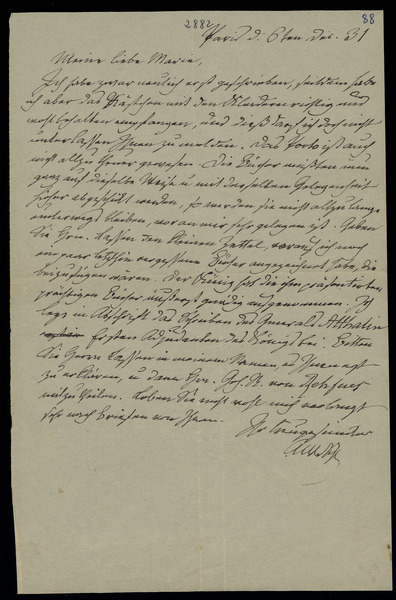 2882
88
Paris d. 6ten Dec. 31
Meine liebe Marie,
Ich habe zwar neulich erst geschrieben, seitdem habe
ich aber das Kästchen mit den Kleidern richtig und
wohl behalten empfangen, und dieß darf ich doch nicht
unterlassen Ihnen zu melden. Das Porto ist auch
nicht allzu theuer gewesen. Die Bücher müßten nun
ganz auf dieselbe Weise u mit derselben Gelegenheit
hieher abgeschickt werden, so werden sie nicht allzu lange
unterwegs bleiben, woran mir sehr gelegen ist. Geben
Sie Hrn. Lassen den kleinen Zettel, worauf ich noch
ein paar letzthin vergessene Bücher angezeichnet habe, die
beizufügen wären. Der König hat die ihm präsentirten
prächtigen Bücher äußerst gnädig aufgenommen. Ich
lege in Abschrift das Schreiben des Generals Atthalin
ersten Adjudanten des Königs bei. Bitten
Sie Herrn Lassen in meinem Namen, es Ihnen erst
zu erklären, u dann Hrn. Geh. R. von Rehfues
mitzutheilen. Leben Sie recht wohl mich verlangt
sehr nach Briefen von Ihnen.
Ihr treugesinnter
AWvSchl